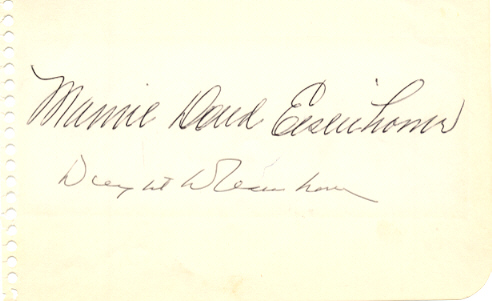 Mamie Doud Eisenhower
Dwight D Eisenhower